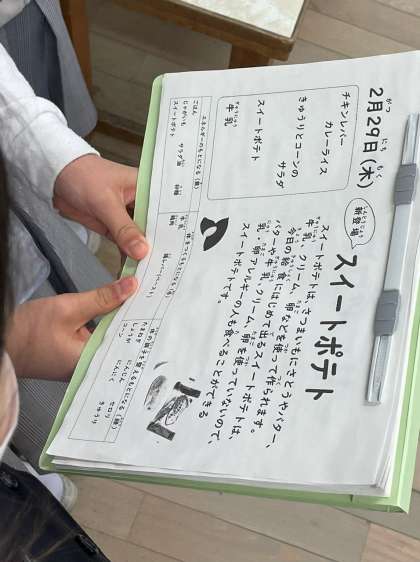 2月29日(木)
チキンレバー
カレーライス
きゅうりとコーンの
サラダ
スイートポテト
牛乳
新登場
スイートポテト
スイートポテトは、さつまいもにさとうやバター、
牛乳、クリーム、卵などを使って作られます。
今日の給食にはじめて出るスイートポテトは、
バターや牛乳・クリーム、卵を使っていないので、
乳・卵アレルギーの人も食べることができる
スイートポテトです。
エネルギーのもとになる(黄)
ごはん
じゃがいも
スイートポテト
サラダ油
砂糖
体をつくるもとになる(赤)
牛乳
豚肉
鶏レバー
体の調子を整えるもとになる(緑)
たまねぎ
しょうが
コーン
にんじん
にんにく
セロリ
きゅうり